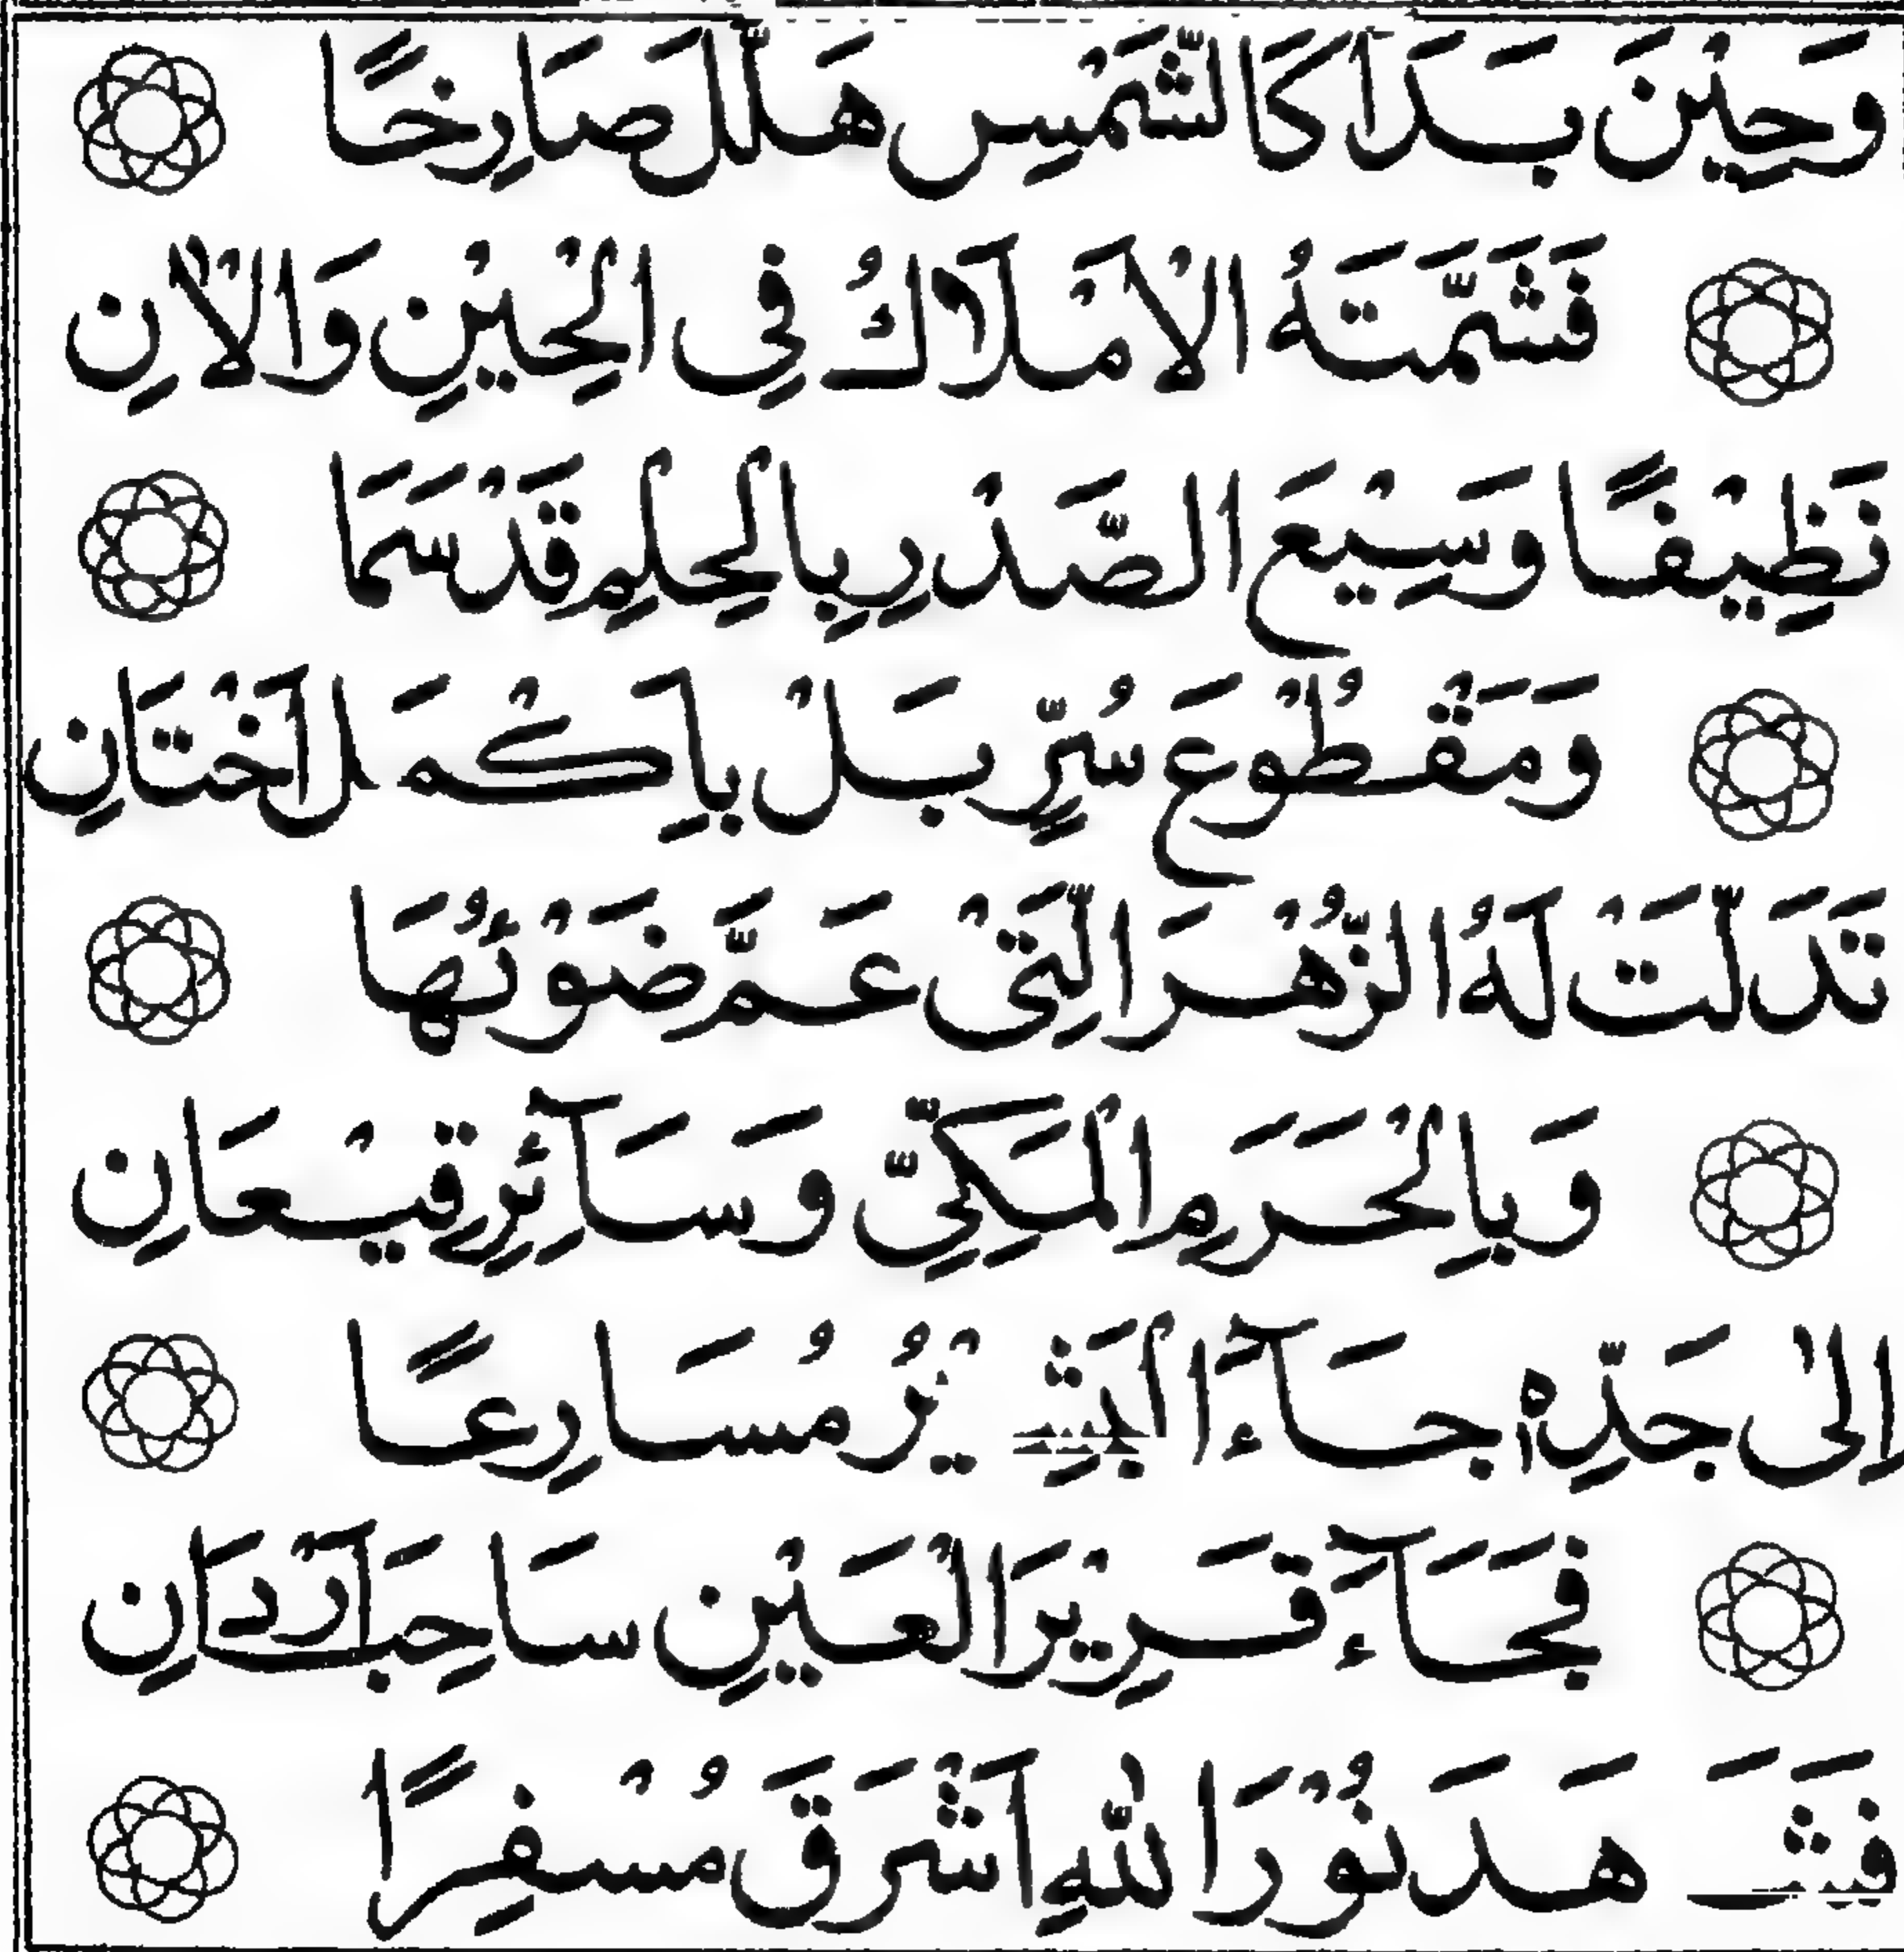 وَحِيْنَ بَدَا كَالشَّمْسِ هَلَّلَ صَارِخًا
فَشَمَّتَهُ الْاَمْلَاكُ فِى الْحِيْنِ وَالْاٰنِ
نَظِيْفًا وَسِيْعَ الصَّدْرِ بِالْحِلْمِ قَدْ سَمَا
وَمَقْطُوْعَ سُرٍّ بَلْ بِاَكْمَلَ اخْتَانِ
تَدَلَّتْ لَهُ الزُّهْرَ الَّتِىْ عَمَّ ضَوْئُهَا
وَبِالْحَرَمِ الْمَكِّيِّ وَسَآئِرِ قِيْعَانِ
اِلٰى جَدِّهٖ جَآءَ الْبَشِيْرُ مُسَارِعًا
فَجَآءَ قَرِيْرَ الْعَيْنِ سَاحِبَ اَرْدَانِ
فَشَهَدَ نُوْرَ اللّٰهِ اَشْرَقَ مُسْفِرًا